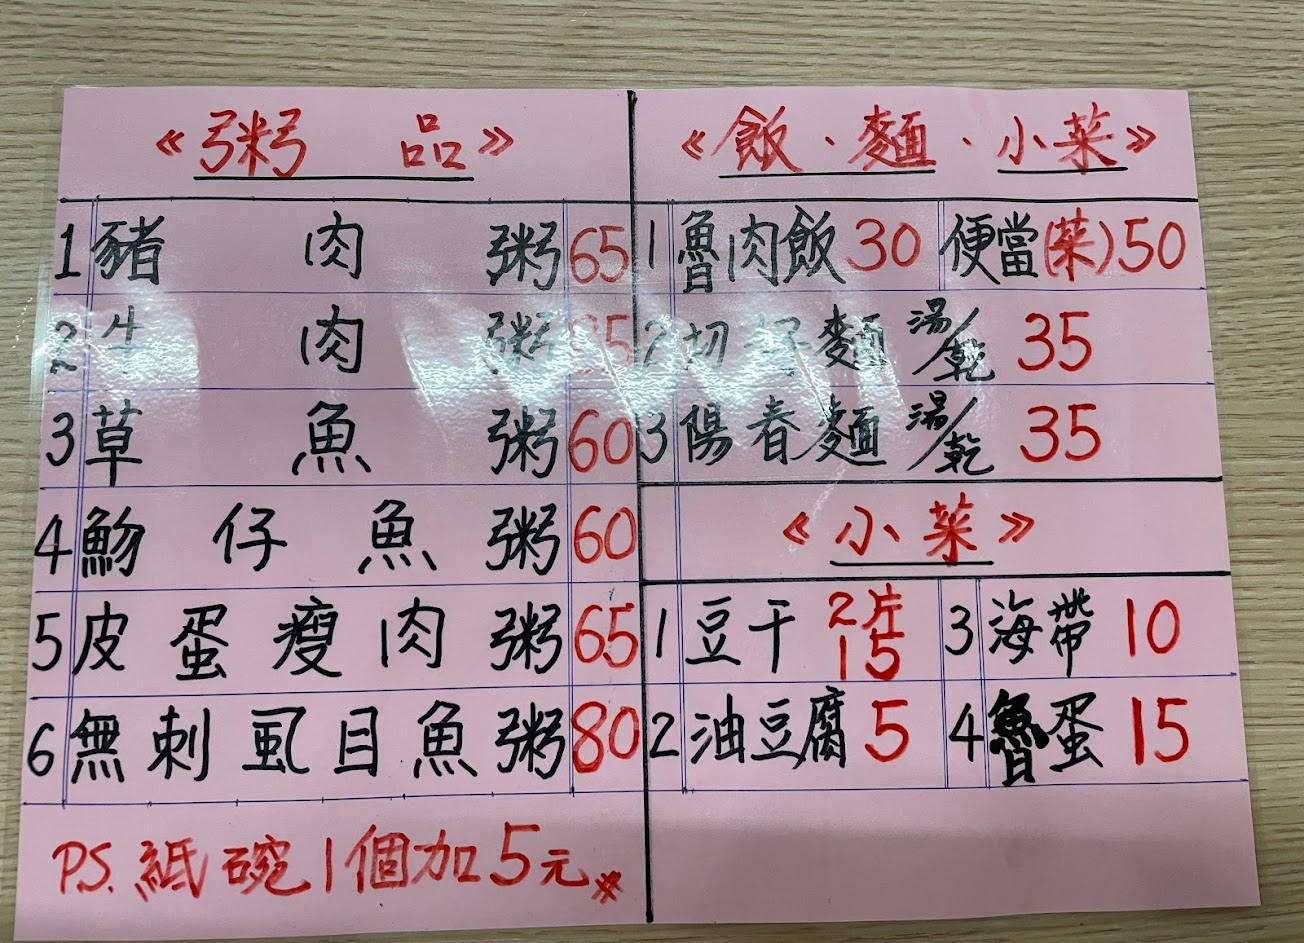 《粥 品》
1 豬肉粥 65
2 牛肉粥
3 草魚粥 60
4 魩仔魚粥 60
5 皮蛋瘦肉粥 65
6 無刺虱目魚粥 80
P.S. 紙碗1個加5元
《飯·麵·小菜》
1 魯肉飯 30 便當(菜)50
2 切仔麵 湯/乾 35
3 陽春麵 湯/乾 35
《小菜》
1 豆干 2片 15 3 海帶 10
2 油豆腐 5 4 魯蛋 15